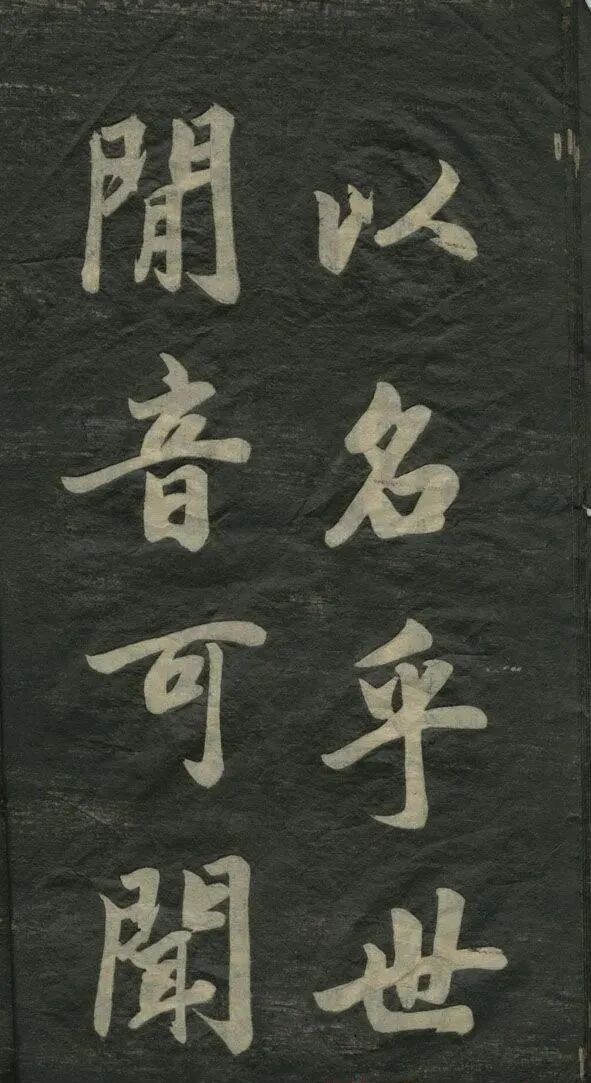 以名乎世
閒音可聞